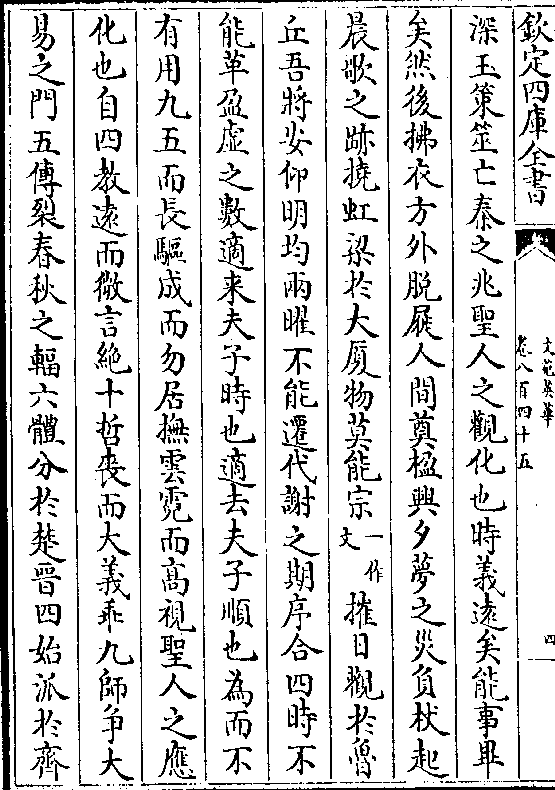 欽定四庫全書
文苑英華
卷八百四十五
四
深玉策筮亡秦之兆聖人之觀化也時義遠矣能事畢
矣然後拂衣方外脫屣人間奠楹興夕夢之災負杖起
晨歌之跡撓虹梁於大厦物莫能宗一作文摧日觀於魯
丘吾將安仰明均兩曜不能遷代謝之期序合四時不
能革盈虛之數適来夫子時也適去夫子順也為而不
有用九五而長驅成而勿居撫雲霓而髙視聖人之應
化也自四教遠而微言絶十哲喪而大義乖九師争大
易之門五傳裂春秋之輻六體分於楚晉四始派於齊